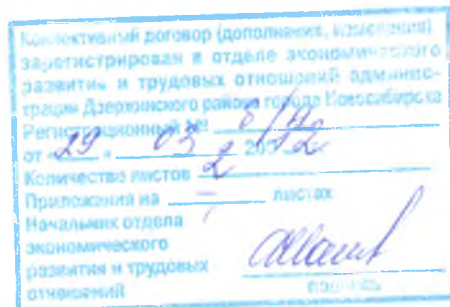 Коллективный договор (дополнения, изменения)
зарегистрирован в отделе экономического
развития и трудовых отношений админис-
трации Дзержинского района города Новосибирска
Регистрационный №
от « 29 » 03 20 12
Количество листов 2
Приложения на – листах
Начальник отдела
экономического
развития и трудовых
отношений
подпись